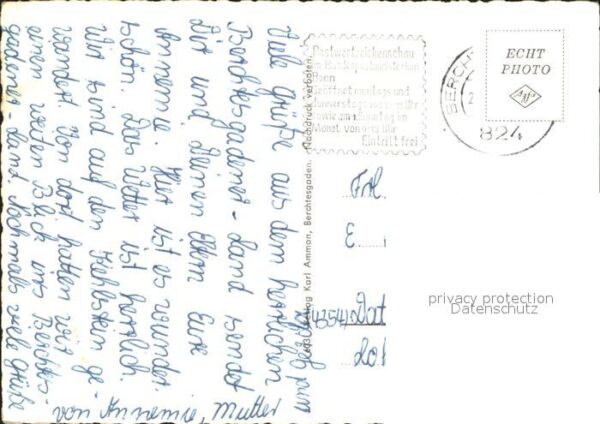 Viele Grüße aus dem herrlichen
Berchtesgadener-Land sendet
Dir und Deinen Eltern Eure
Annemie. Hier ist es wunder
schön. Das Wetter ist herrlich.
Wir sind auf den Kehlstein ge
wandert. Von dort hatten wir
einen weiten Blick ins Berchtes-
gadener Land. Nochmals viele Grüße
von Annemie, Mutter
Verlag Karl Ammon, Berchtesgaden. Nachdruck verboten.
Postwertzeichenschau
im Bundespostministerium
Bonn
Geöffnet
Eintritt frei
BERCH
824
ECHT
PHOTO
AGFA
Frl.
E
(4354) Dat
privacy protection
Datenschutz